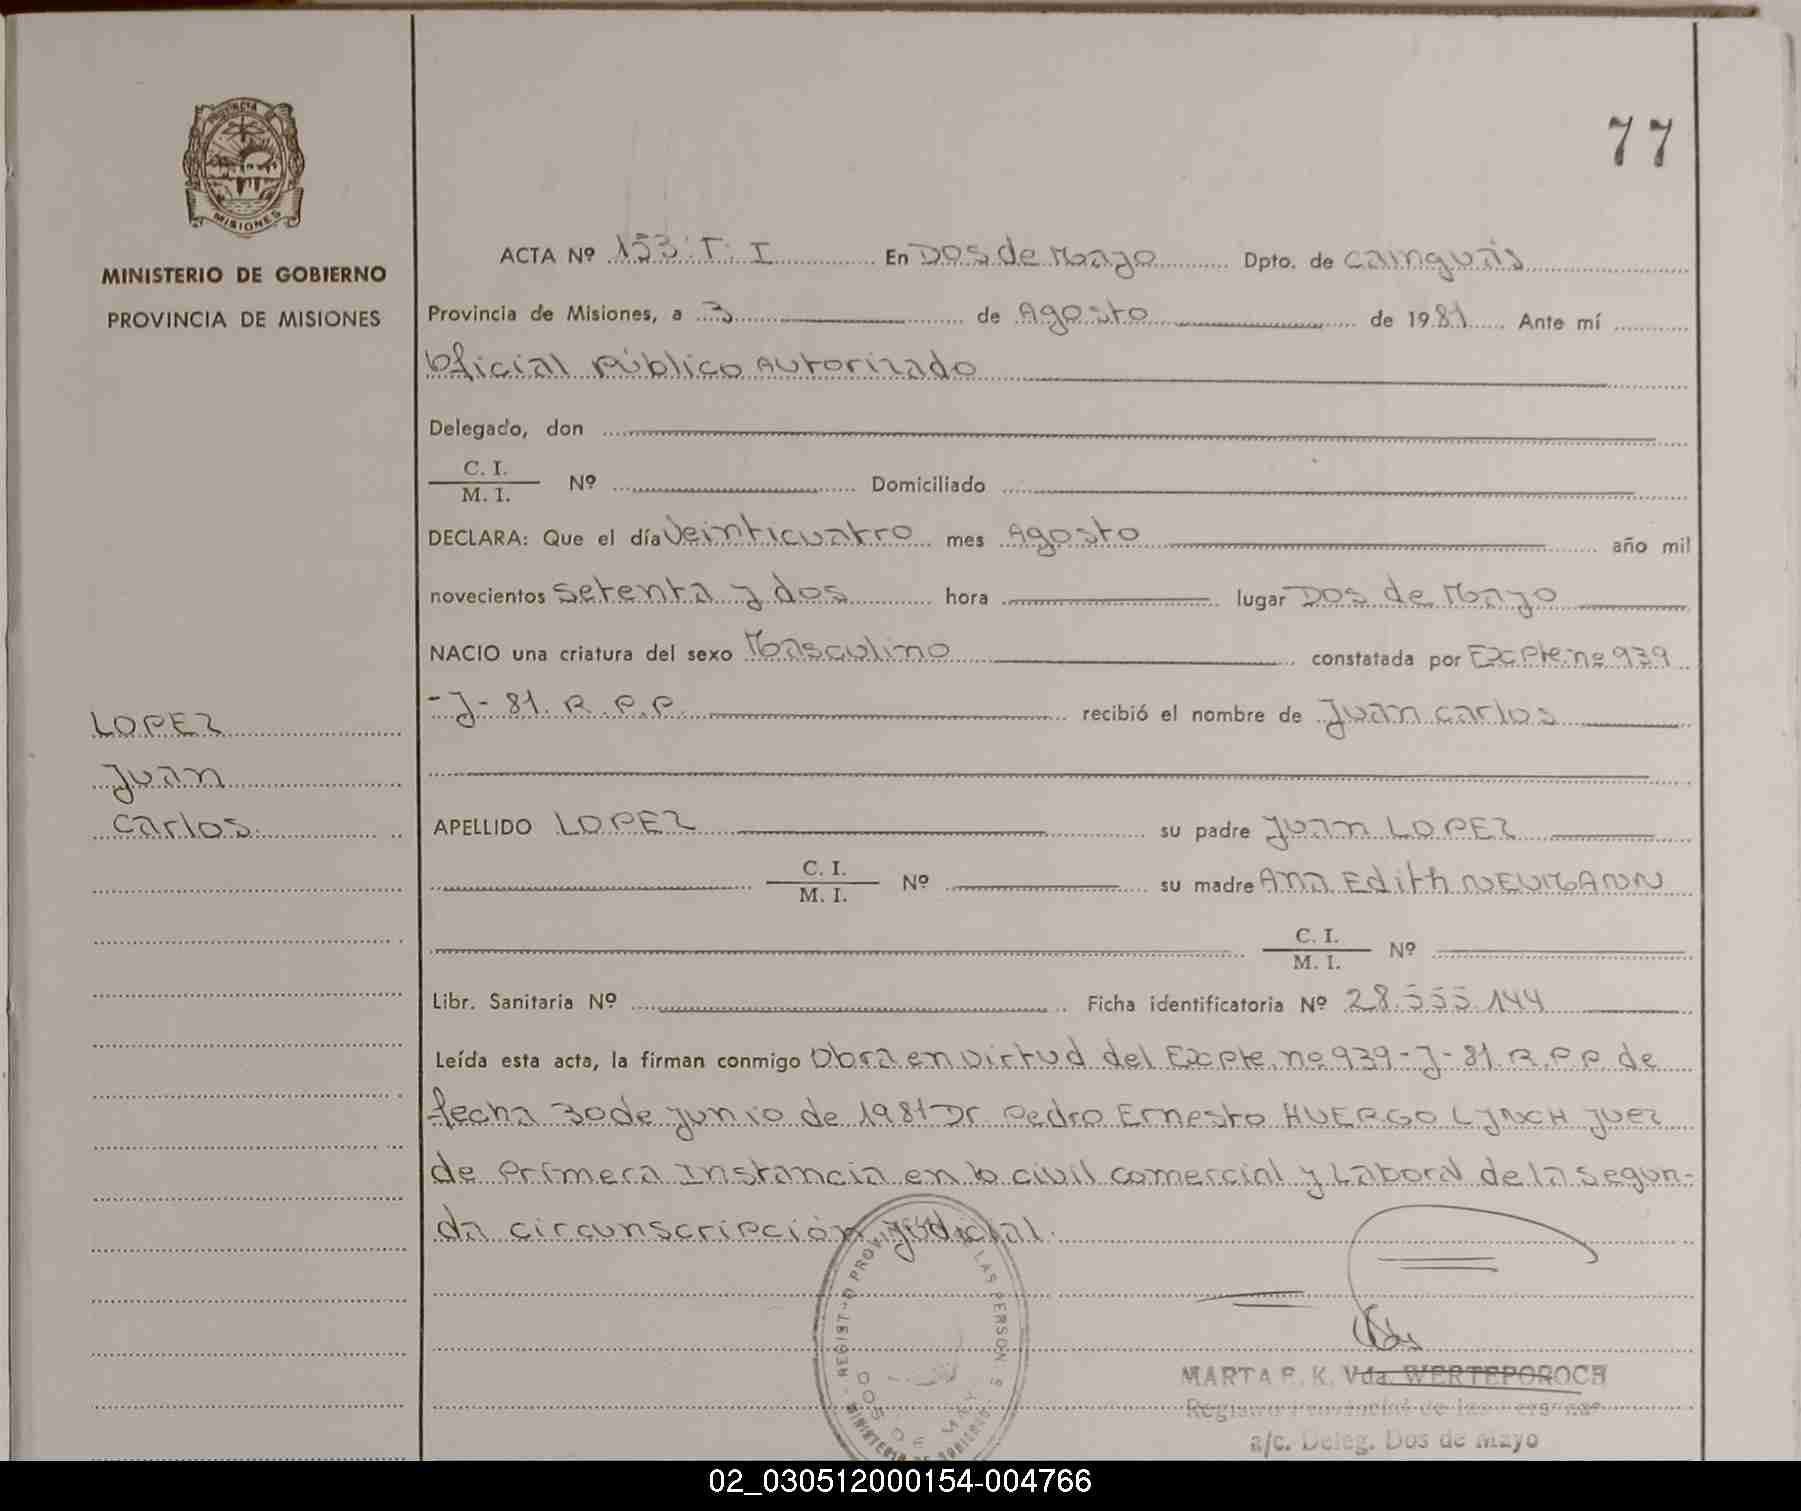 77
PROVINCIA
MISIONES
MINISTERIO DE GOBIERNO
PROVINCIA DE MISIONES
LOPEZ
Juan
Carlos.
ACTA Nº 153. T. I En Dos de Mayo Dpto. de Cainguás
Provincia de Misiones, a 3 de Agosto de 1981 Ante mí
Oficial Público Autorizado
Delegado, don
C. I.
M. I. Nº Domiciliado
DECLARA: Que el día Veinticuatro mes Agosto año mil
novecientos setenta y dos hora lugar Dos de Mayo
NACIO una criatura del sexo Masculino constatada por Expte. nº 939
-J-81. R.P.P. recibió el nombre de Juan Carlos
APELLIDO LOPEZ su padre Juan LOPEZ
C. I.
M. I. Nº su madre Ana Edith NEUMANN
C. I.
M. I. Nº
Libr. Sanitaria Nº Ficha identificatoria Nº 28.555.144
Leída esta acta, la firman conmigo Obra en virtud del Expte. nº 939-J-81. R.P.P. de
fecha 30 de junio de 1981 Dr Pedro Ernesto HUERGO LYNCH juez
de Primera Instancia en lo civil comercial y Laboral de la Segun-
da circunscripción judicial.
MARTA E. K. Vda. WERTEPOROCH
Registro Provincial de las Personas
a/c. Deleg. Dos de Mayo
02_030512000154-004766